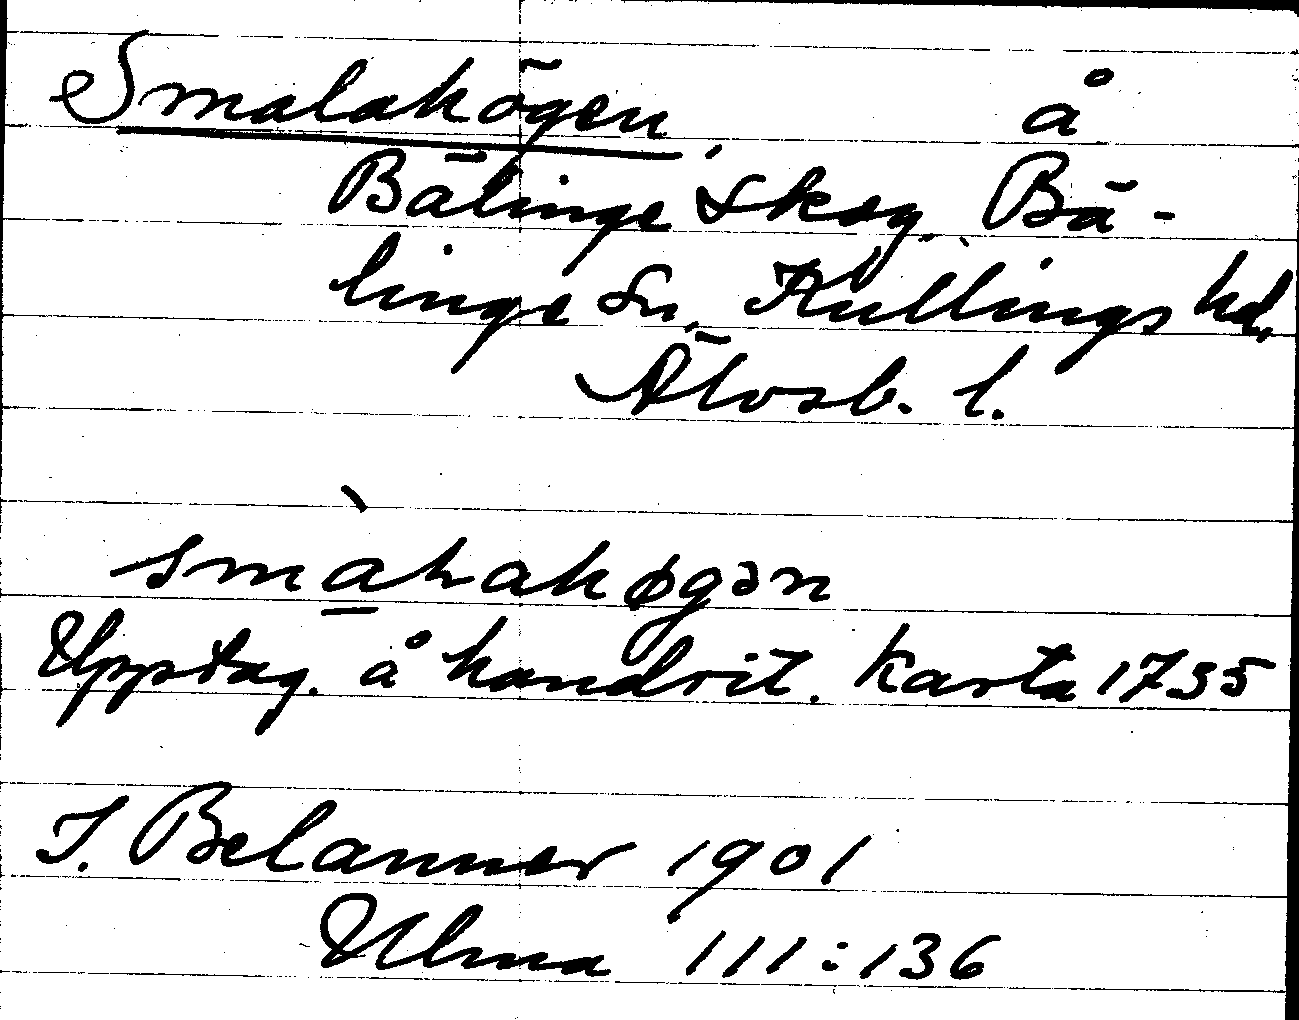 Smalakögen, å
Bälinge skog. Bä-
linge sn, Kullings hd,
Älvsb. l.
smàlakøgən
Upptag. å handrit. karta 1735
I. Belanner 1901
Ulma 111:136